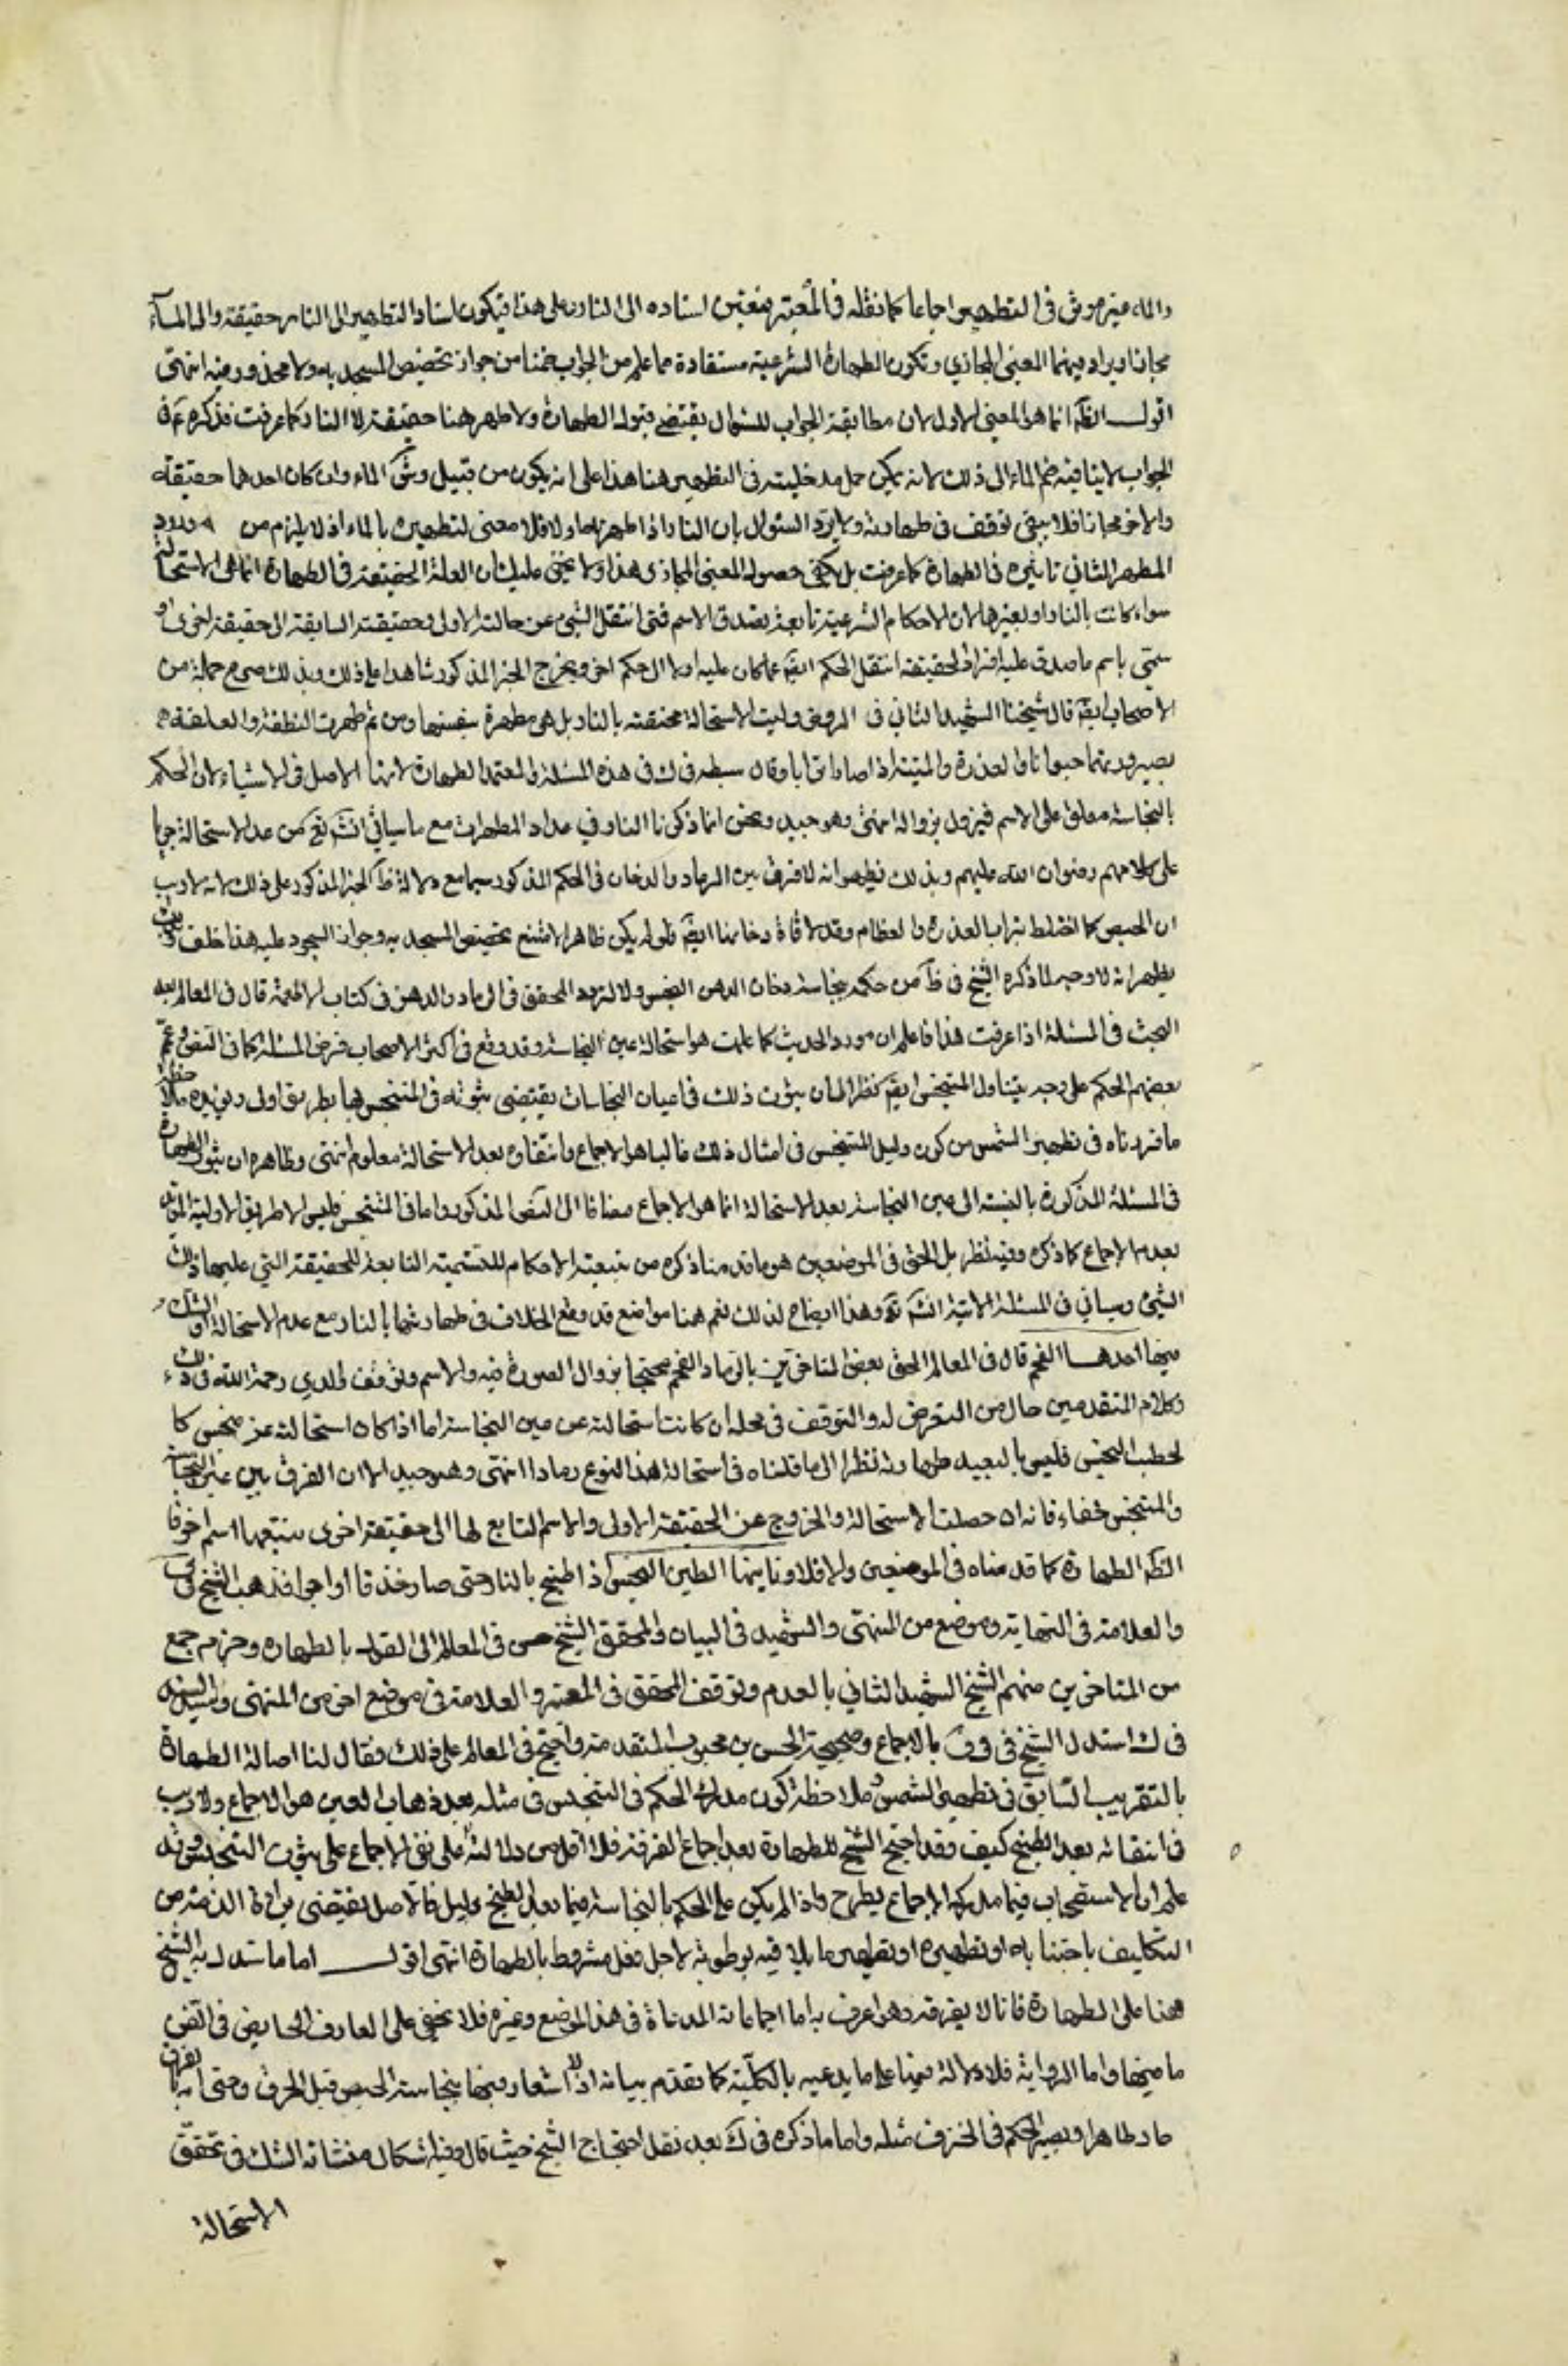 والماء غير موثر في التطهير اجماعا كما نقله في المعتبر فيتعين اسناده الى النار وعلى هذا فيكون اسناد التطهير الى النار حقيقة والى الماء
مجازا ويراد بهما المعنى المجازي وتكون الطهارة الشرعية مستفادة مما علم من الجواب ضمنا من جواز تجصيص المسجد به ولا محذور فيه انتهى
اقول الظ انما هو المعنى الاول لان مطابقة الجواب للسؤال يقتضي قبوله الطهارة ولا مطهر هنا حقيقة الا النار كما عرفت فذكره ع في
الجواب لا ينافيه ضم الماء الى ذلك لانه يمكن حمل مدخليته في التطهير هنا هذا على انه يكون من قبيل رش الماء وان كان احدهما حقيقة
والاخر مجازا فلا يبقى توقف في طهارته ولا يرد السئوال بان النار اذا طهرته اولا فلا معنى لتطهيره بالماء اذ لا يلزم من ورود
المطهر الثاني تاثيره في الطهارة كما عرفت بل يكفي حصول المعنى المجازي هذا ولا يخفى عليك ان العلة الحقيقة في الطهارة انما هي الاستحالة
سواء كانت بالنار او بغيرها لان الاحكام الشرعية تابعة لصدق الاسم فمتى انتقل الشيء عن حالته الاولى وحقيقته السابقة الى حقيقة اخرى و
سمي باسم ما صدق عليه افراد الحقيقة انتقل الحكم ايضا عما كان عليه اولا الى حكم اخر ويخرج الخبر المذكور شاهدا على ذلك وبذلك صرح جملة من
الاصحاب ايضا قال شيخنا الشهيد الثاني في الروض وليت الاستحالة مختصة بالنار بل هي مطهرة بنفسها ومن ثم طهرت النطفة والعلقة
بصيرورتهما حيوانا والعذرة والميتة اذا صارا ترابا وقال سبطه في ك في هذه المسئلة والمعتمد الطهارة لانها الاصل في الاشياء لان الحكم
بالنجاسة معلق على الاسم فيزول بزواله انتهى وهو جيد ونحن انما ذكرنا النار في عداد المطهرات مع ما سياتي انش تع من عد الاستحالة جريا
على كلامهم رضوان الله عليهم وبذلك يظهر انه لا فرق بين الرماد والدخان في الحكم المذكور سيما مع دلالة ظ الخبر المذكور على ذلك لانه لا ريب
ان الجص كما اختلط بتراب العذرة والعظام وقد لاقاه دخانها ايضا فلو لم يكن طاهرا لامتنع تجصيص المسجد به وجواز السجود عليه هذا خلف وبذلك
يظهر انه لا وجه لما ذكره الشيخ في ط من حكمه بنجاسة دخان الدهن النجس ولا لتردد المحقق في الرماد والدهن في كتاب الاطعمة قال في المعالم بعد
البحث في المسئلة اذا عرفت هذا فاعلم ان مورد الحديث كما علمت هو استحالة عين النجاسة وقد وقع في اكثر الاصحاب فرض المسئلة كما في النص وعمم
بعضهم الحكم على وجه يتناول المتنجس ايضا نظرا الى ان ثبوت ذلك في اعيان النجاسات يقتضي ثبوته في المتنجس بها بطريق اولى ويؤيده ملاحظة
ما قررناه في تطهير الشمس من كون دليل التنجيس في امثال ذلك غالبا هو الاجماع وانتفاؤه بعد الاستحالة معلوم انتهى وظاهره ان ثبوت الطهارة
في المسئلة المذكورة بالنسبة الى عين النجاسة بعد الاستحالة انما هو الاجماع مضافا الى النص المذكور واما في المتنجس فليس الا طريق الاولوية
بعد الاجماع كما ذكره وفيه نظر بل الحق في الموضعين هو ما قدمنا ذكره من تبعية الاحكام للتسمية التابعة للحقيقة التي عليها ذلك
الشيء وسياتي في المسئلة الاتية انش تع وهذا ايضاح لذلك نعم هنا مواضع قد وقع الخلاف في طهارتها بالنار مع عدم الاستحالة او الشك
فيها احدها الفحم قال في المعالم الحق بعض المتاخرين بالرماد الفحم محتجا بزوال الصورة فيه والاسم وتوقف والدي رحمة الله في ذلك
وكلام المتقدمين خال من التعرض له والتوقف في محله ان كانت استحالته عن عين النجاسة اما اذا كان استحالته عن متنجس كا
لحطب النجس فليس بالبعيد طهارته نظرا الى ما قلناه في استحالة هذا النوع رمادا انتهى وهو جيد الا ان الفرق بين عين النجاسة
والمتنجس خفاء فانه ان حصلت الاستحالة والخروج عن الحقيقة الاولى والاسم التابع لها الى حقيقة اخرى يتبعها اسم اخر فا
الظ الطهارة كما قدمناه في الموضعين والا فلا وثانيها الطين النجس اذا طبخ بالنار حتى صار خزفا او اجرا فذهب الشيخ في ف
والعلامة في النهاية وموضع من المنتهى والشهيد في البيان والمحقق الشيخ حسن في المعالم الى القول بالطهارة وجزم جمع
من المتاخرين منهم الشيخ الشهيد الثاني بالعدم وتوقف المحقق في المعتبر والعلامة في موضع اخر من المنتهى والسيد السند
في ك استدل الشيخ في ف بالاجماع وصحيحة الحسن بن محبوب المتقدمة واحتج في المعالم على ذلك فقال لنا اصالة الطهارة
بالتقريب السابق في تطهير الشمس وملاحظة كون مدرك الحكم في التنجيس في مثله بعد ذهاب العين هو الاجماع ولا ريب
في انتفائه بعد الطبخ كيف وقد احتج الشيخ للطهارة بعد اجماع الفرقة فلا اقل من دلالته على نفي الاجماع على ثبوت التنجيس وقد
علم ان الاستصحاب فيما مدركه الاجماع يطرح واذا لم يكن على الحكم بالنجاسة فيما بعد الطبخ دليل فالاصل يقتضي براءة الذمة من
التكليف باجتنابه او تطهيره او تطهير ما يلاقيه برطوبة لاجل فعل مشروط بالطهارة انتهى اقول اما ما استدل به الشيخ
هنا على الطهارة فانا لا نعرفه وهو اعرف به اما اجماعاته المدعاة في هذا الموضع وغيره فلا يخفى على العارف الخائض في الفن
ما فيها واما الرواية فلا دلالة فيها على ما يدعيه بالكلية كما تقدم بيانه اذ لا اشعار فيها بنجاسة الجص قبل الحرق وحتى انه بالحرق
صار طاهرا ويصير الحكم في الخزف مثله واما ما ذكره في ك بعد نقل احتجاج الشيخ حيث قال وفيه اشكال منشائه الشك في تحقق
الاستحالة